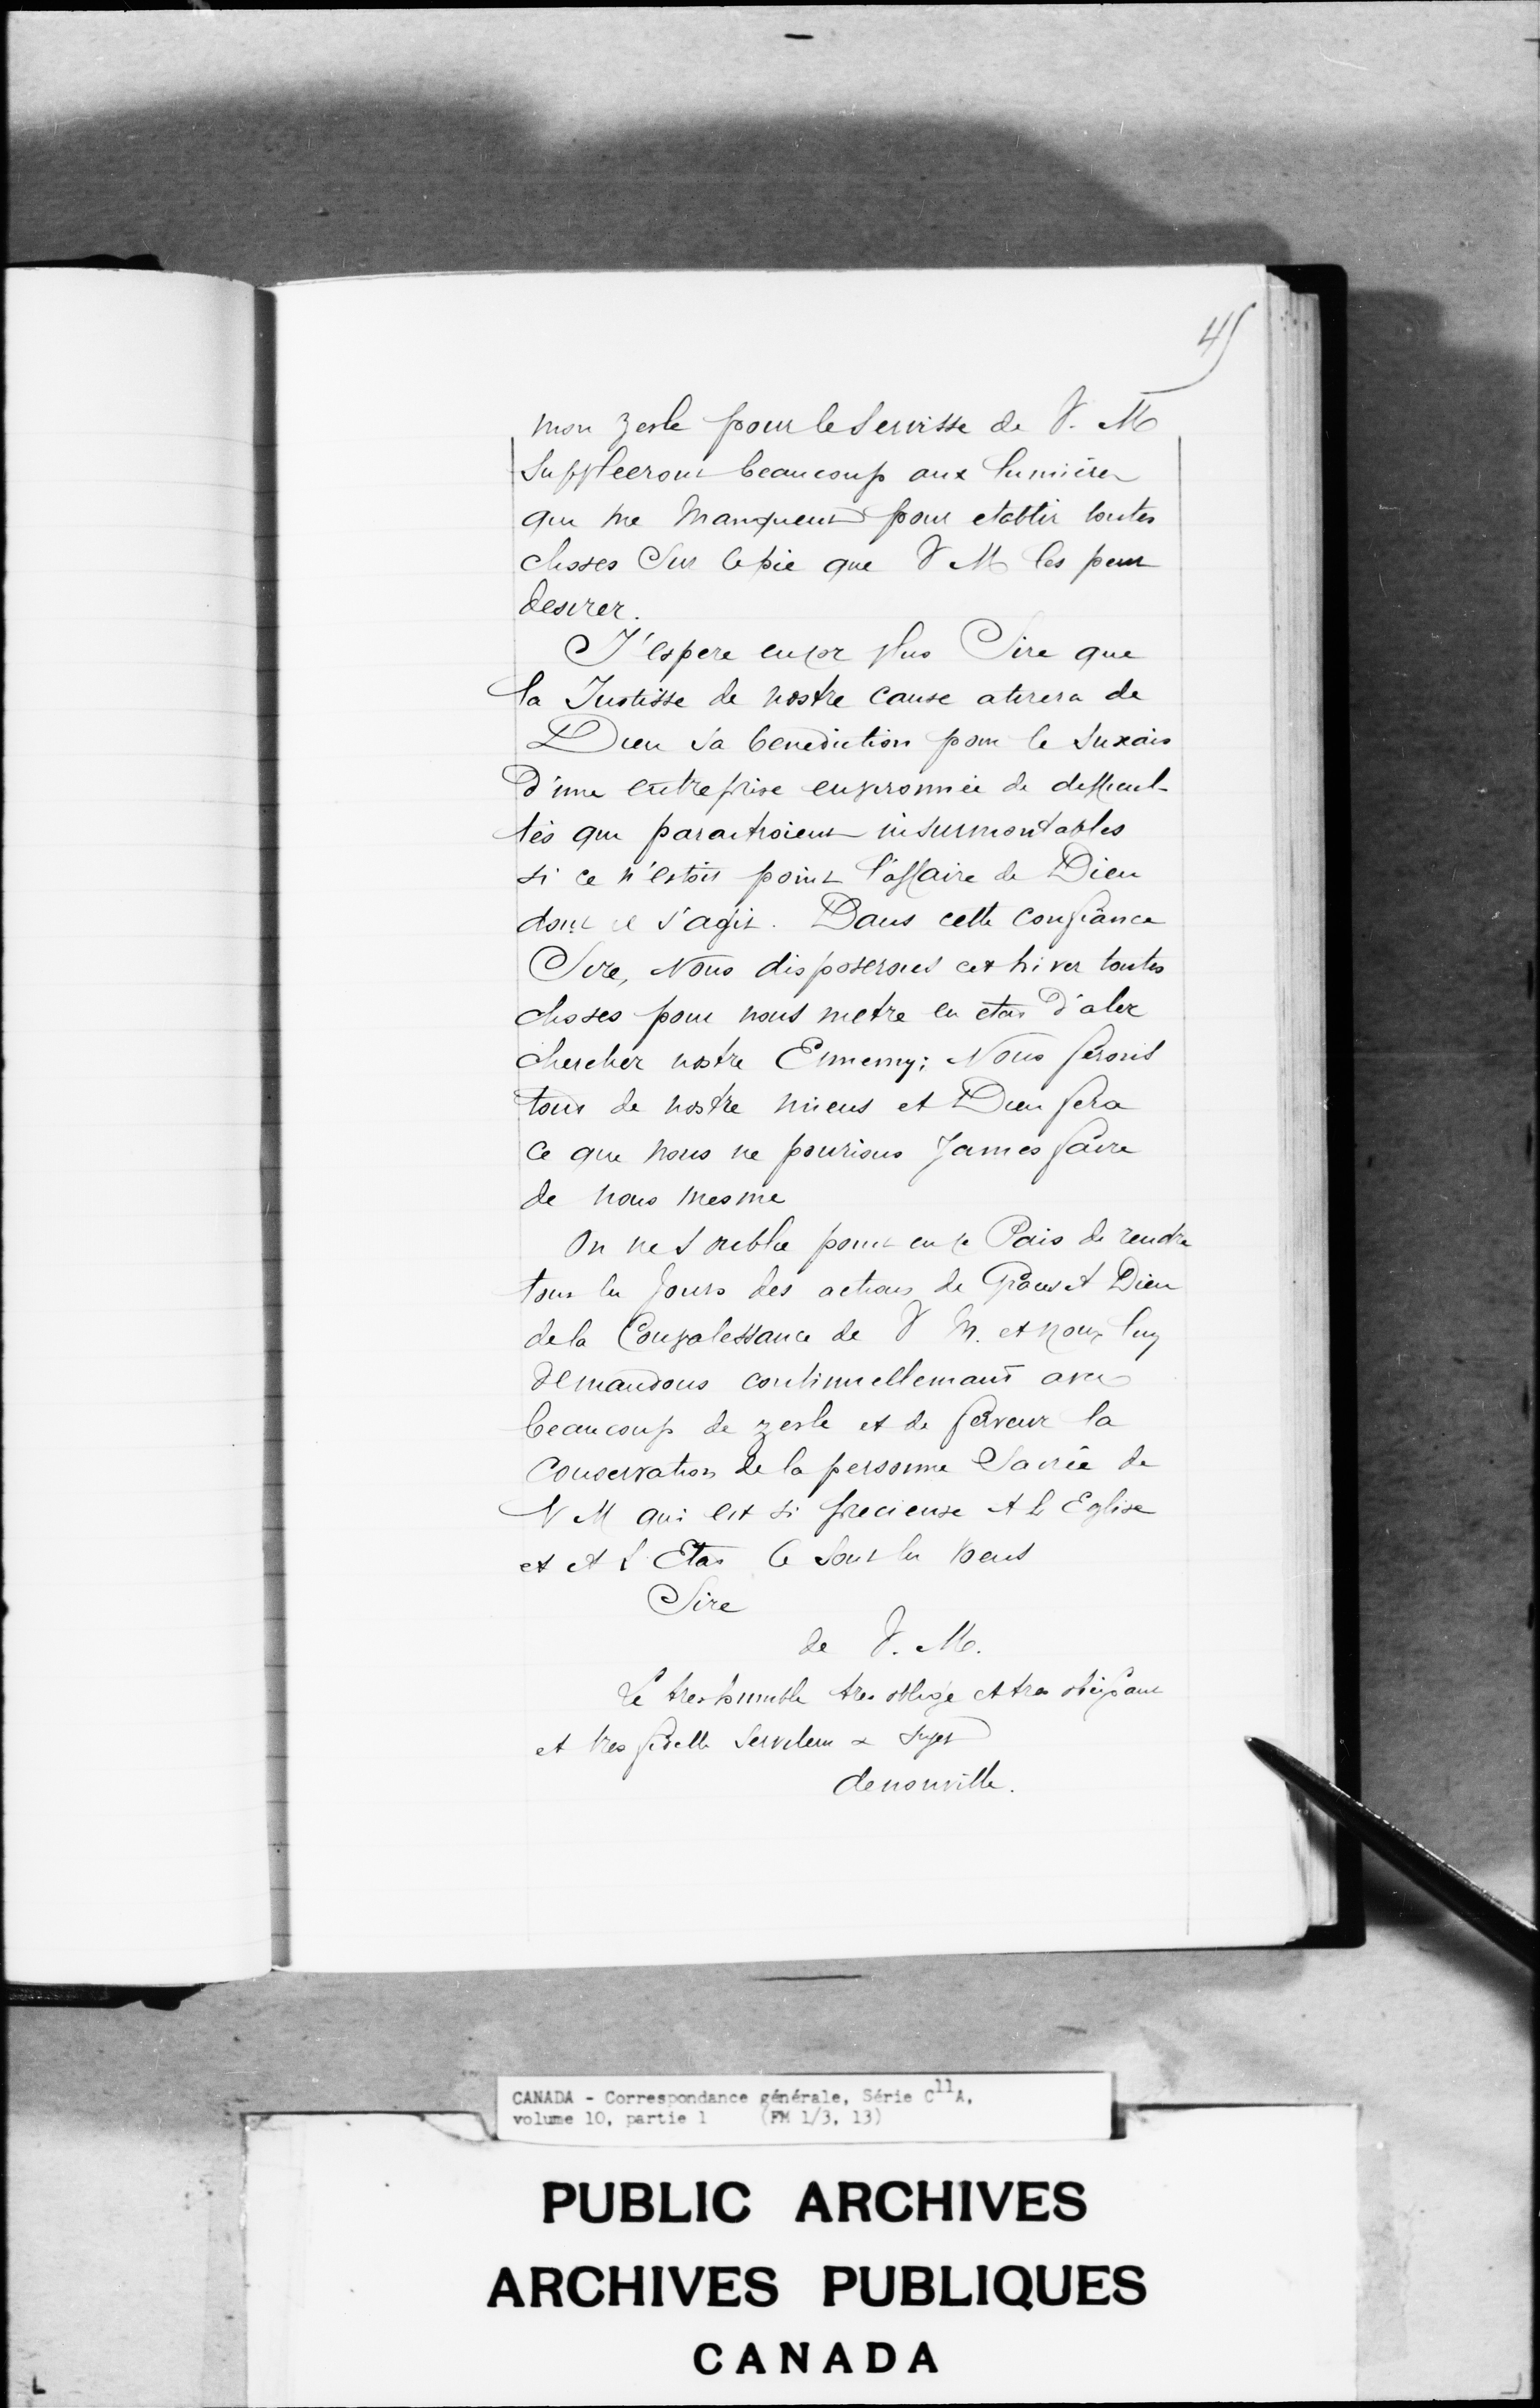 45
mon zesle pour le Servisse de V. M
Suppleeront beaucoup aux lumieres
qui me manquent pour etablir toutes
choses Sur le pie que V M les peut
desirer.
J'espere encor plus Sire que
la Justisse de nostre cause atirera de
Dieu sa benediction pour le suxais
d'une entreprise environnée de difficul-
tés qui paraitroient insurmontables
si ce n'estoit point l'affaire de Dieu
dont il s'agit. Dans cette confiance
Sire, Nous disposerons cet hiver toutes
choses pour nous metre en etat d'aler
chercher nostre Ennemy; Nous ferons
tout de nostre mieus et Dieu fera
ce que nous ne pourions James faire
de nous mesme
On ne s oublie point en ce Pais de rendre
tous les Jours des actions de Graces A Dieu
de la Convalessance de V M. et nous luy
demandons continuellemant avec
beaucoup de zesle et de ferveur la
Conservation de la personne Sacrée de
V M qui est si precieuse A L Eglise
et A L Etat Ce sont les voeus
Sire
de V. M.
Le tres humble tres obligé et tres obeissant
et tres fidelle serviteur & sujet
denonville.
CANADA - Correspondance générale, Série C11A,
volume 10, partie 1 (FM 1/3, 13)
PUBLIC ARCHIVES
ARCHIVES PUBLIQUES
CANADA